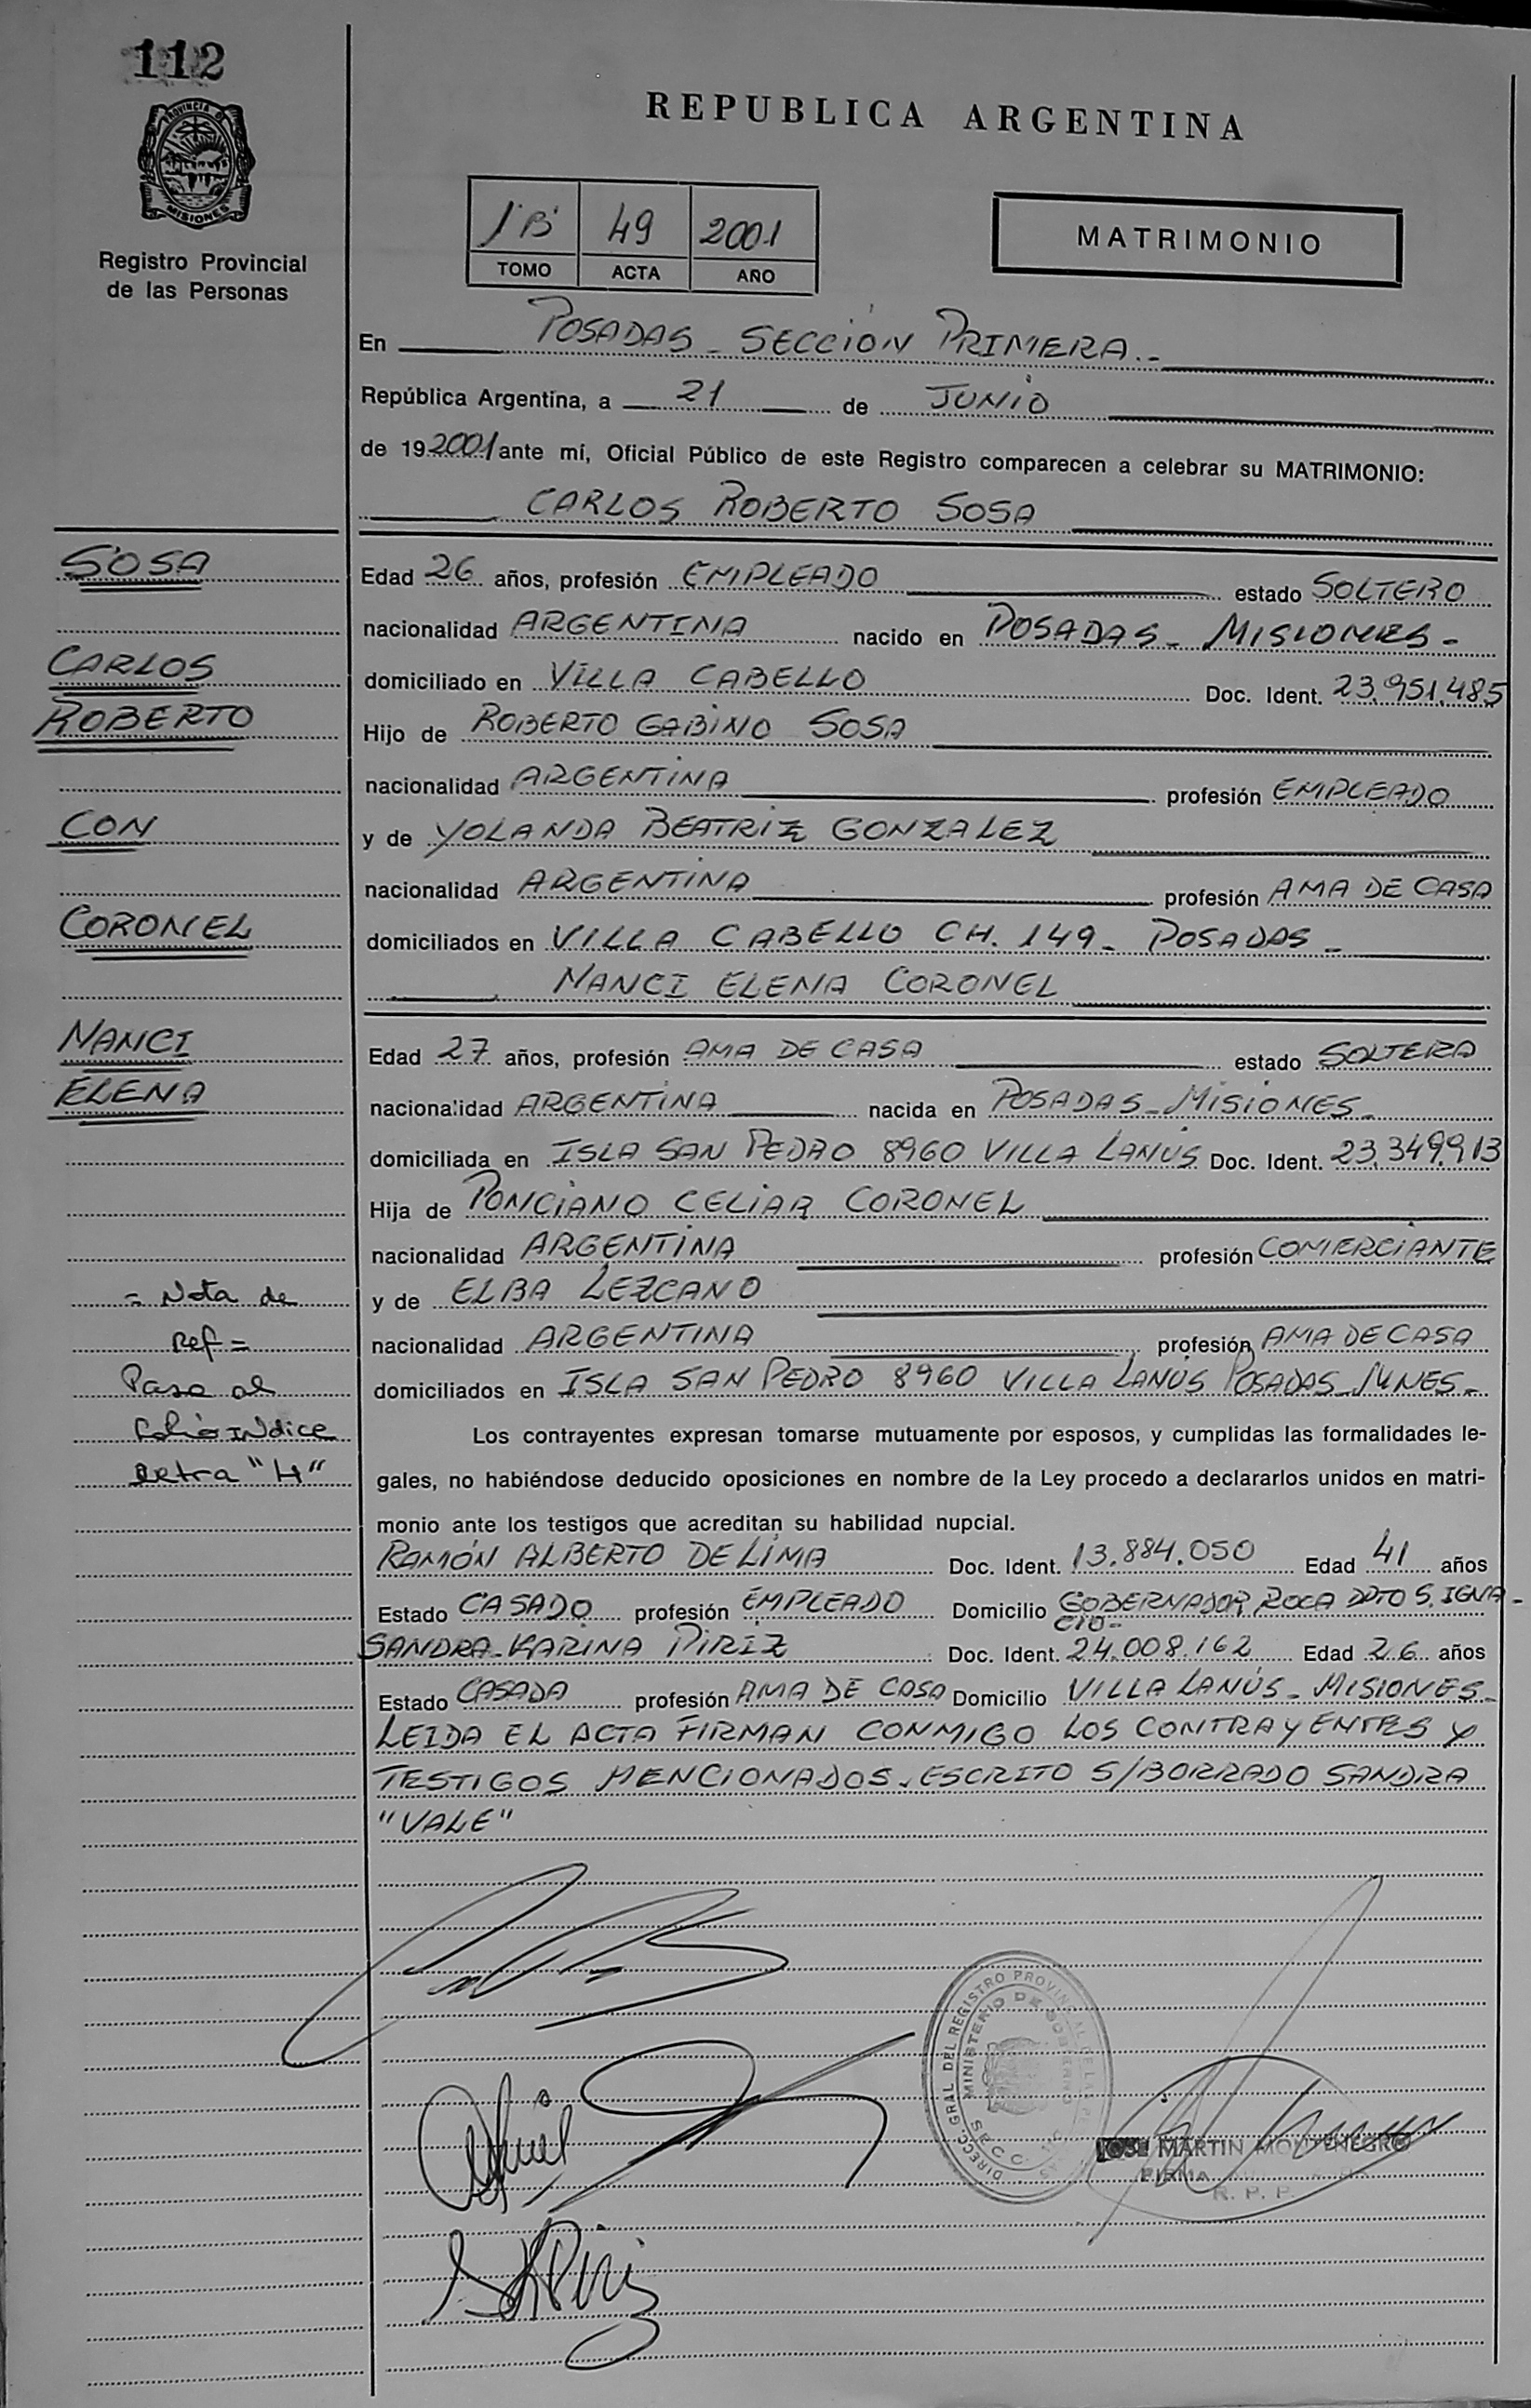 112
REPUBLICA ARGENTINA
PROVINCIA DE
MISIONES
Registro Provincial
de las Personas
1B 49 2001
TOMO ACTA AÑO
MATRIMONIO
En POSADAS - SECCIÓN PRIMERA.-
República Argentina, a 21 de JUNIO
de 192001 ante mí, Oficial Público de este Registro comparecen a celebrar su MATRIMONIO:
CARLOS ROBERTO SOSA
SOSA
Edad 26 años, profesión EMPLEADO estado SOLTERO
nacionalidad ARGENTINA nacido en POSADAS - MISIONES -
CARLOS
domiciliado en VILLA CABELLO Doc. Ident. 23.951.485
ROBERTO
Hijo de ROBERTO GABINO SOSA
nacionalidad ARGENTINA profesión EMPLEADO
CON
y de YOLANDA BEATRIZ GONZALEZ
nacionalidad ARGENTINA profesión AMA DE CASA
CORONEL
domiciliados en VILLA CABELLO CH. 149 - POSADAS -
NANCI ELENA CORONEL
NANCI
Edad 27 años, profesión AMA DE CASA estado SOLTERA
ELENA
nacionalidad ARGENTINA nacida en POSADAS - MISIONES -
domiciliada en ISLA SAN PEDRO 8960 VILLA LANÚS Doc. Ident. 23.349.913
Hija de PONCIANO CELIAR CORONEL
nacionalidad ARGENTINA profesión COMERCIANTE
= Nota de
y de ELBA LEZCANO
Ref =
nacionalidad ARGENTINA profesión AMA DE CASA
Pasa al
domiciliados en ISLA SAN PEDRO 8960 VILLA LANÚS POSADAS - MNES -
folio INdice
Los contrayentes expresan tomarse mutuamente por esposos, y cumplidas las formalidades le-
Letra "H"
gales, no habiéndose deducido oposiciones en nombre de la Ley procedo a declararlos unidos en matri-
monio ante los testigos que acreditan su habilidad nupcial.
RAMÓN ALBERTO DE LIMA Doc. Ident. 13.884.050 Edad 41 años
Estado CASADO profesión EMPLEADO Domicilio GOBERNADOR ROCA DPTO S. IGNA-
CIO-
SANDRA KARINA PIRIZ Doc. Ident. 24.008.162 Edad 26 años
Estado CASADA profesión AMA DE CASA Domicilio VILLA LANÚS - MISIONES -
LEIDA EL ACTA FIRMAN CONMIGO LOS CONTRAYENTES Y
TESTIGOS MENCIONADOS. ESCRITO S/BORRADO SANDRA
"VALE"
DIRECC. GRAL DEL REGISTRO PROVINCIAL DE LAS PERSONAS
MINISTERIO DE GOBIERNO
SECC.
JOSE MARTIN MONTENEGRO
FIRMA
R. P. P.